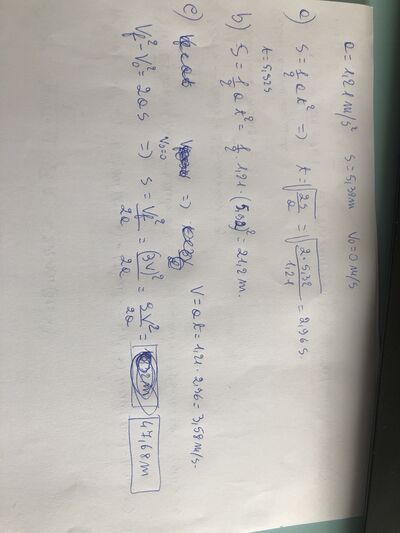 a = 1,21 m/s² s = 5,32m V₀ = 0 m/s
a) s = 1/2 a t² ⇒ t = √(2s/a) = √(2·5,32/1,21) = 2,96 s.
b) t = 5,92s
S = 1/2 a t² = 1/2 · 1,21 · (5,92)² = 21,2 m.
c) ⇒ V = at = 1,21 · 2,96 = 3,58 m/s.
V₀=0
Vf² - V₀² = 2as ⇒ s = Vf²/2a = (3V)²/2a = 9V²/2a = 47,68 m